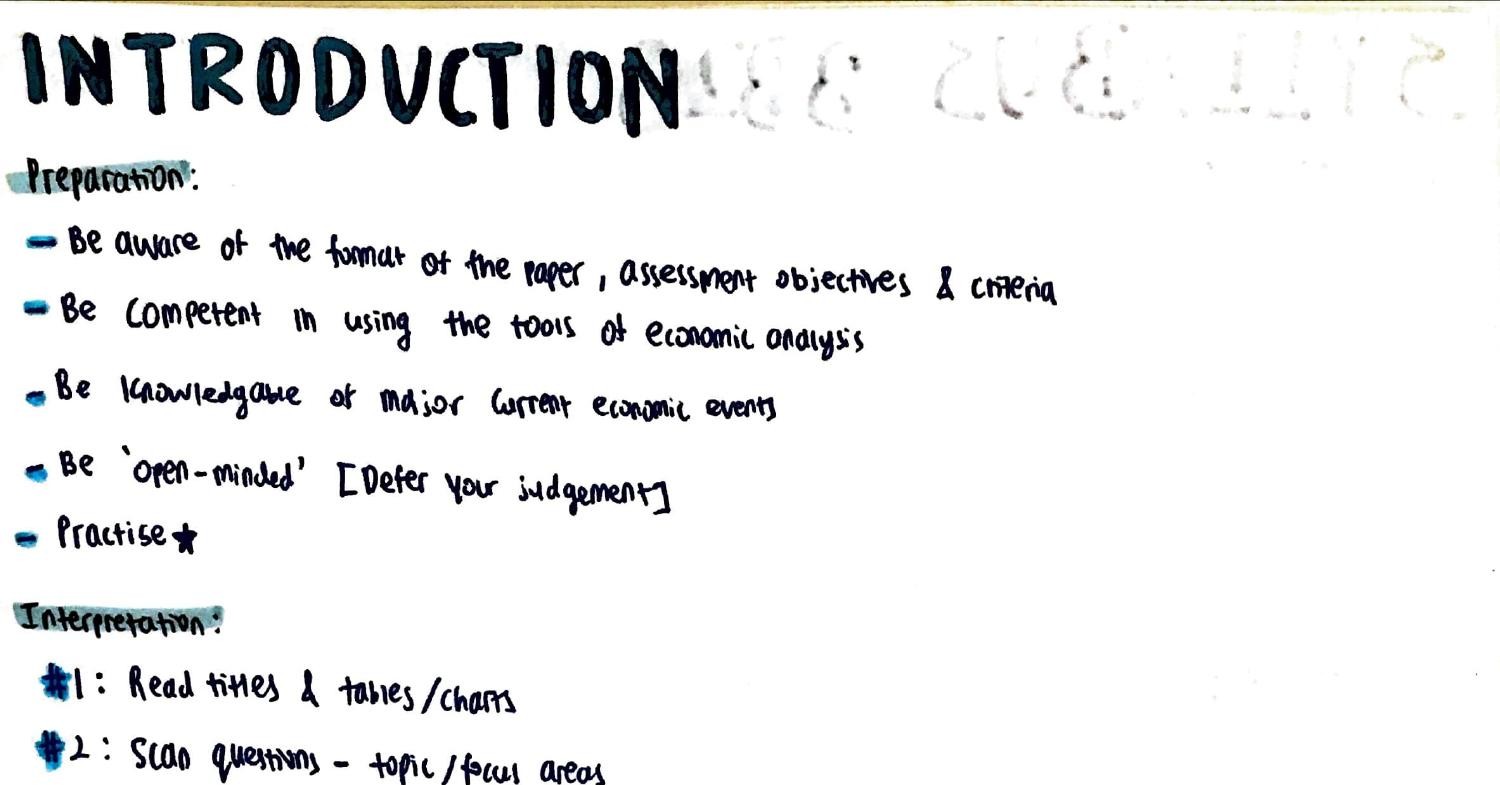 INTRODUCTION
Preparation:
- Be aware of the format of the paper, assessment objectives & criteria
- Be competent in using the tools of economic analysis
- Be knowledgable of major current economic events
- Be 'open-minded' [Defer your judgement]
- Practise ★
Interpretation:
#1: Read titles & tables/charts
#2: Scan questions - topic/focus areas